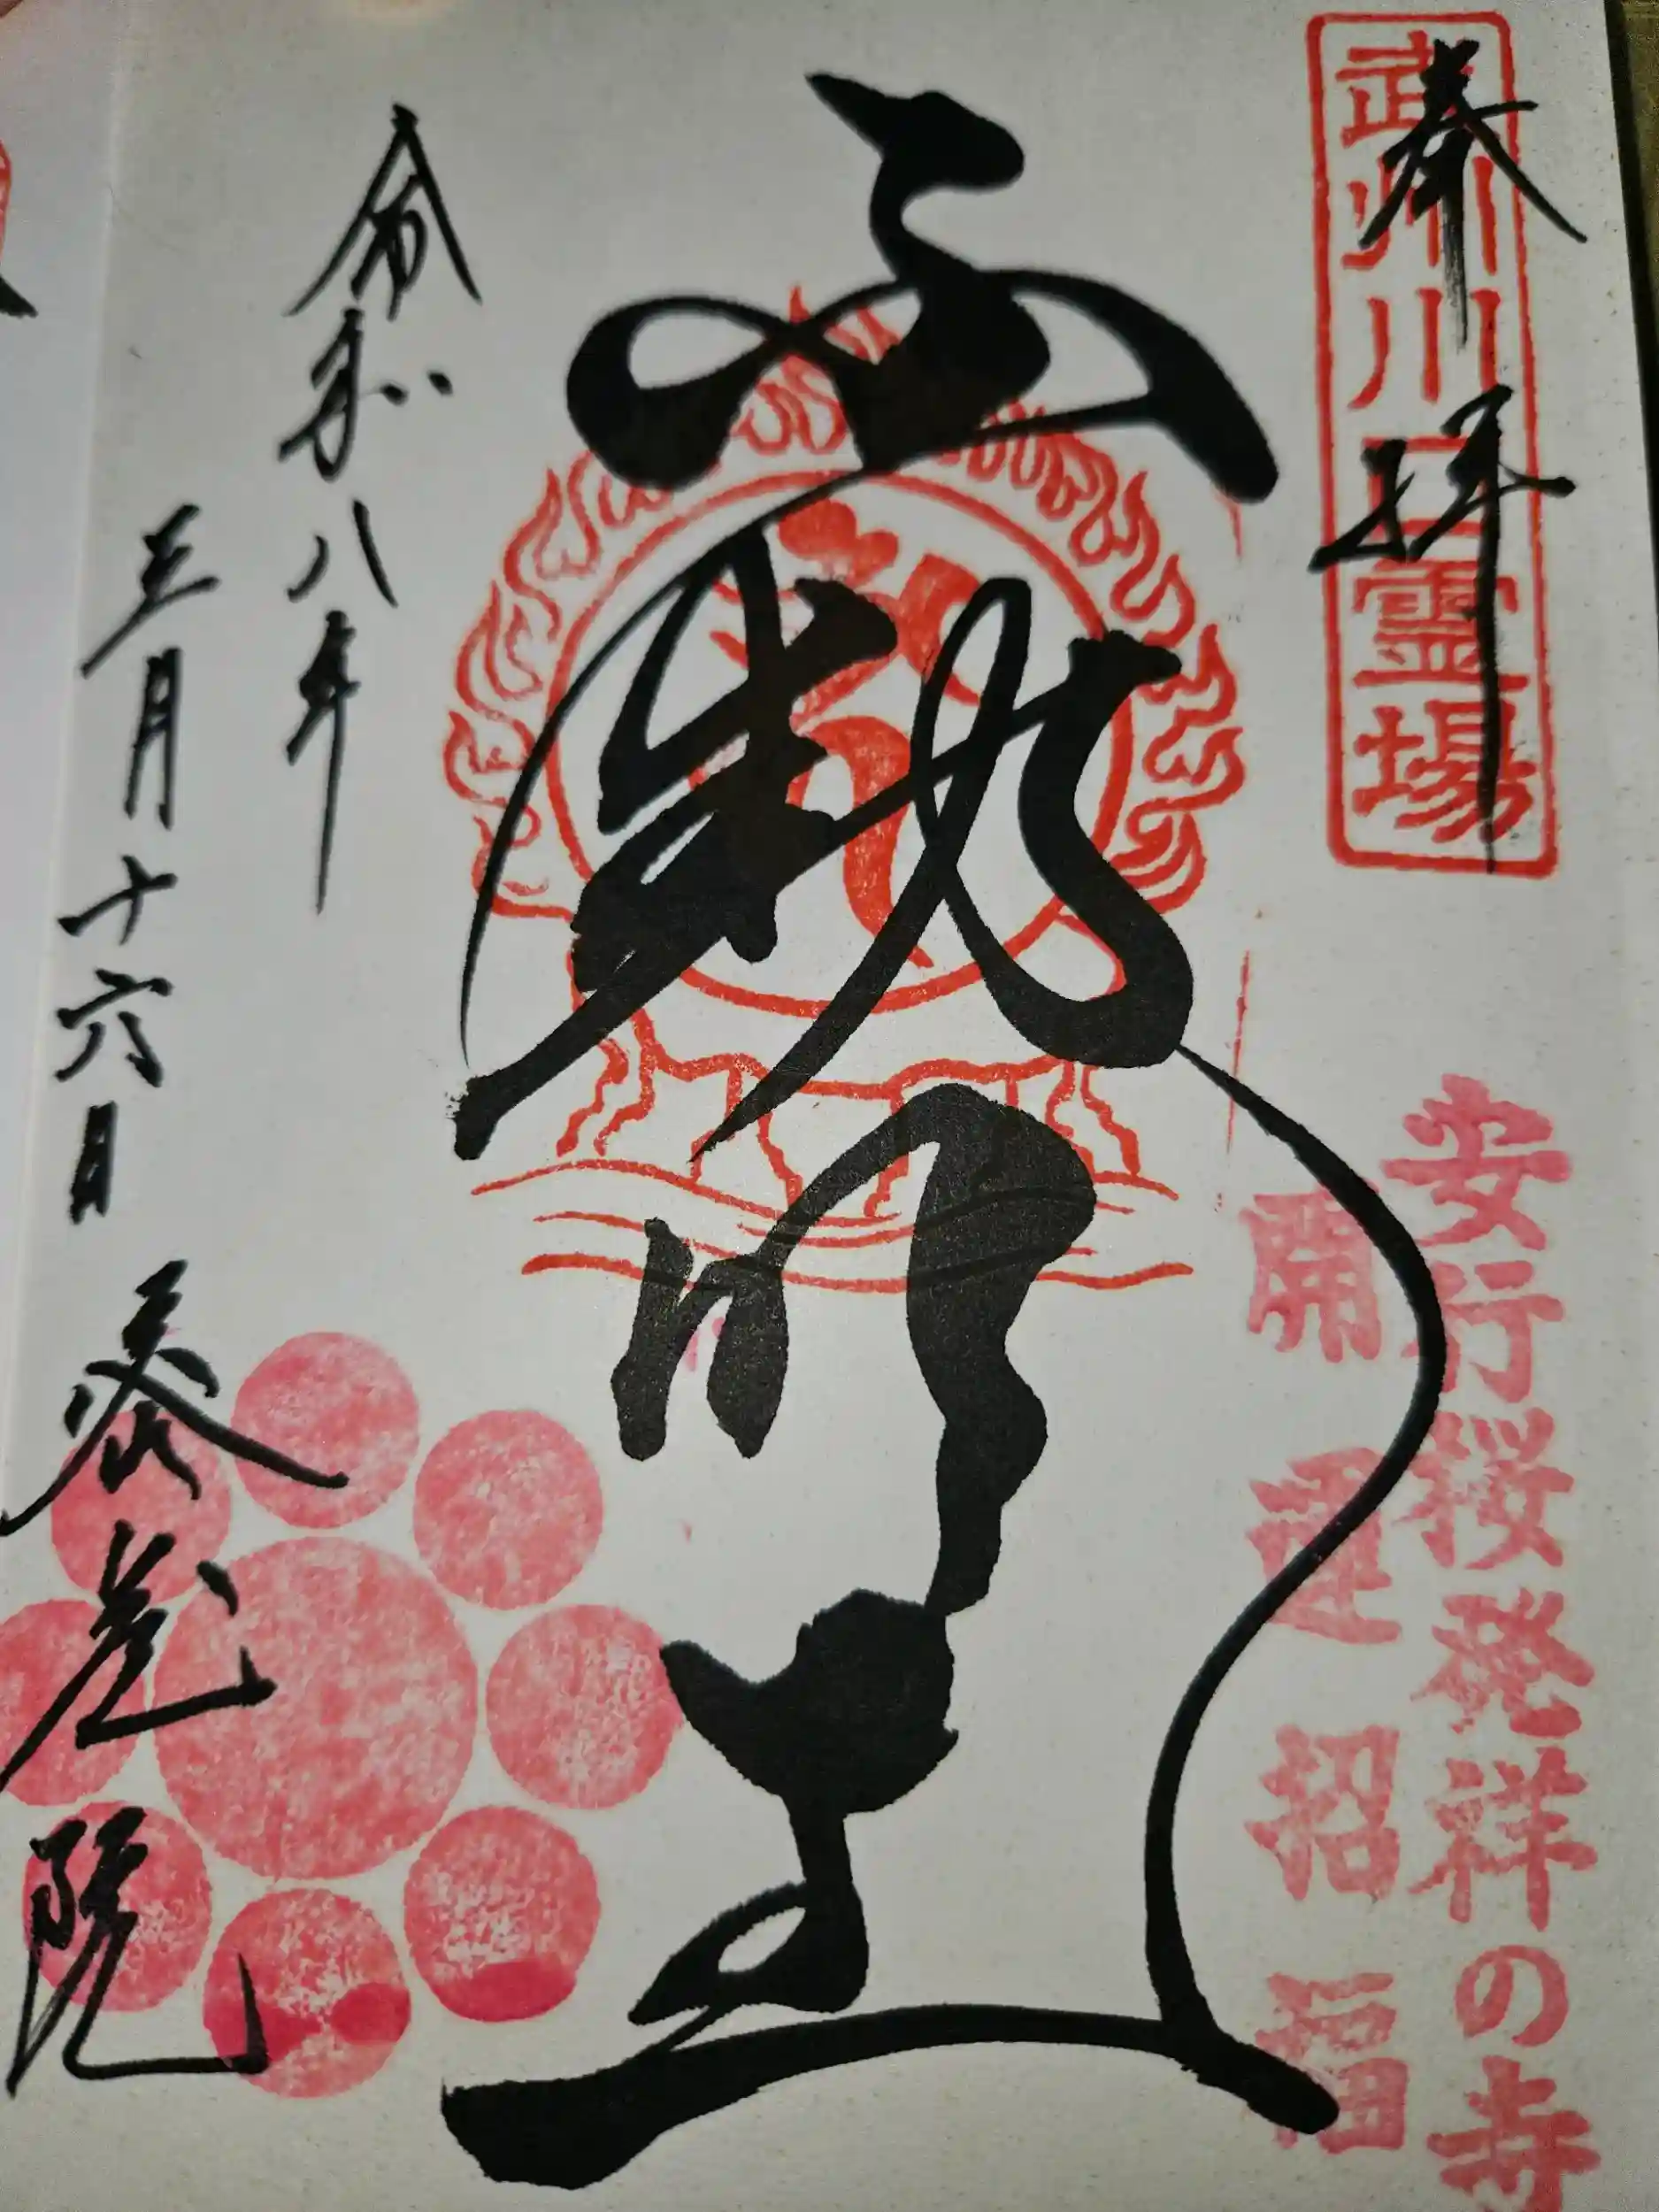 奉拝
武州川口霊場
安行桜発祥の寺
開運招福
不動明王
令和八年
三月十六日
院